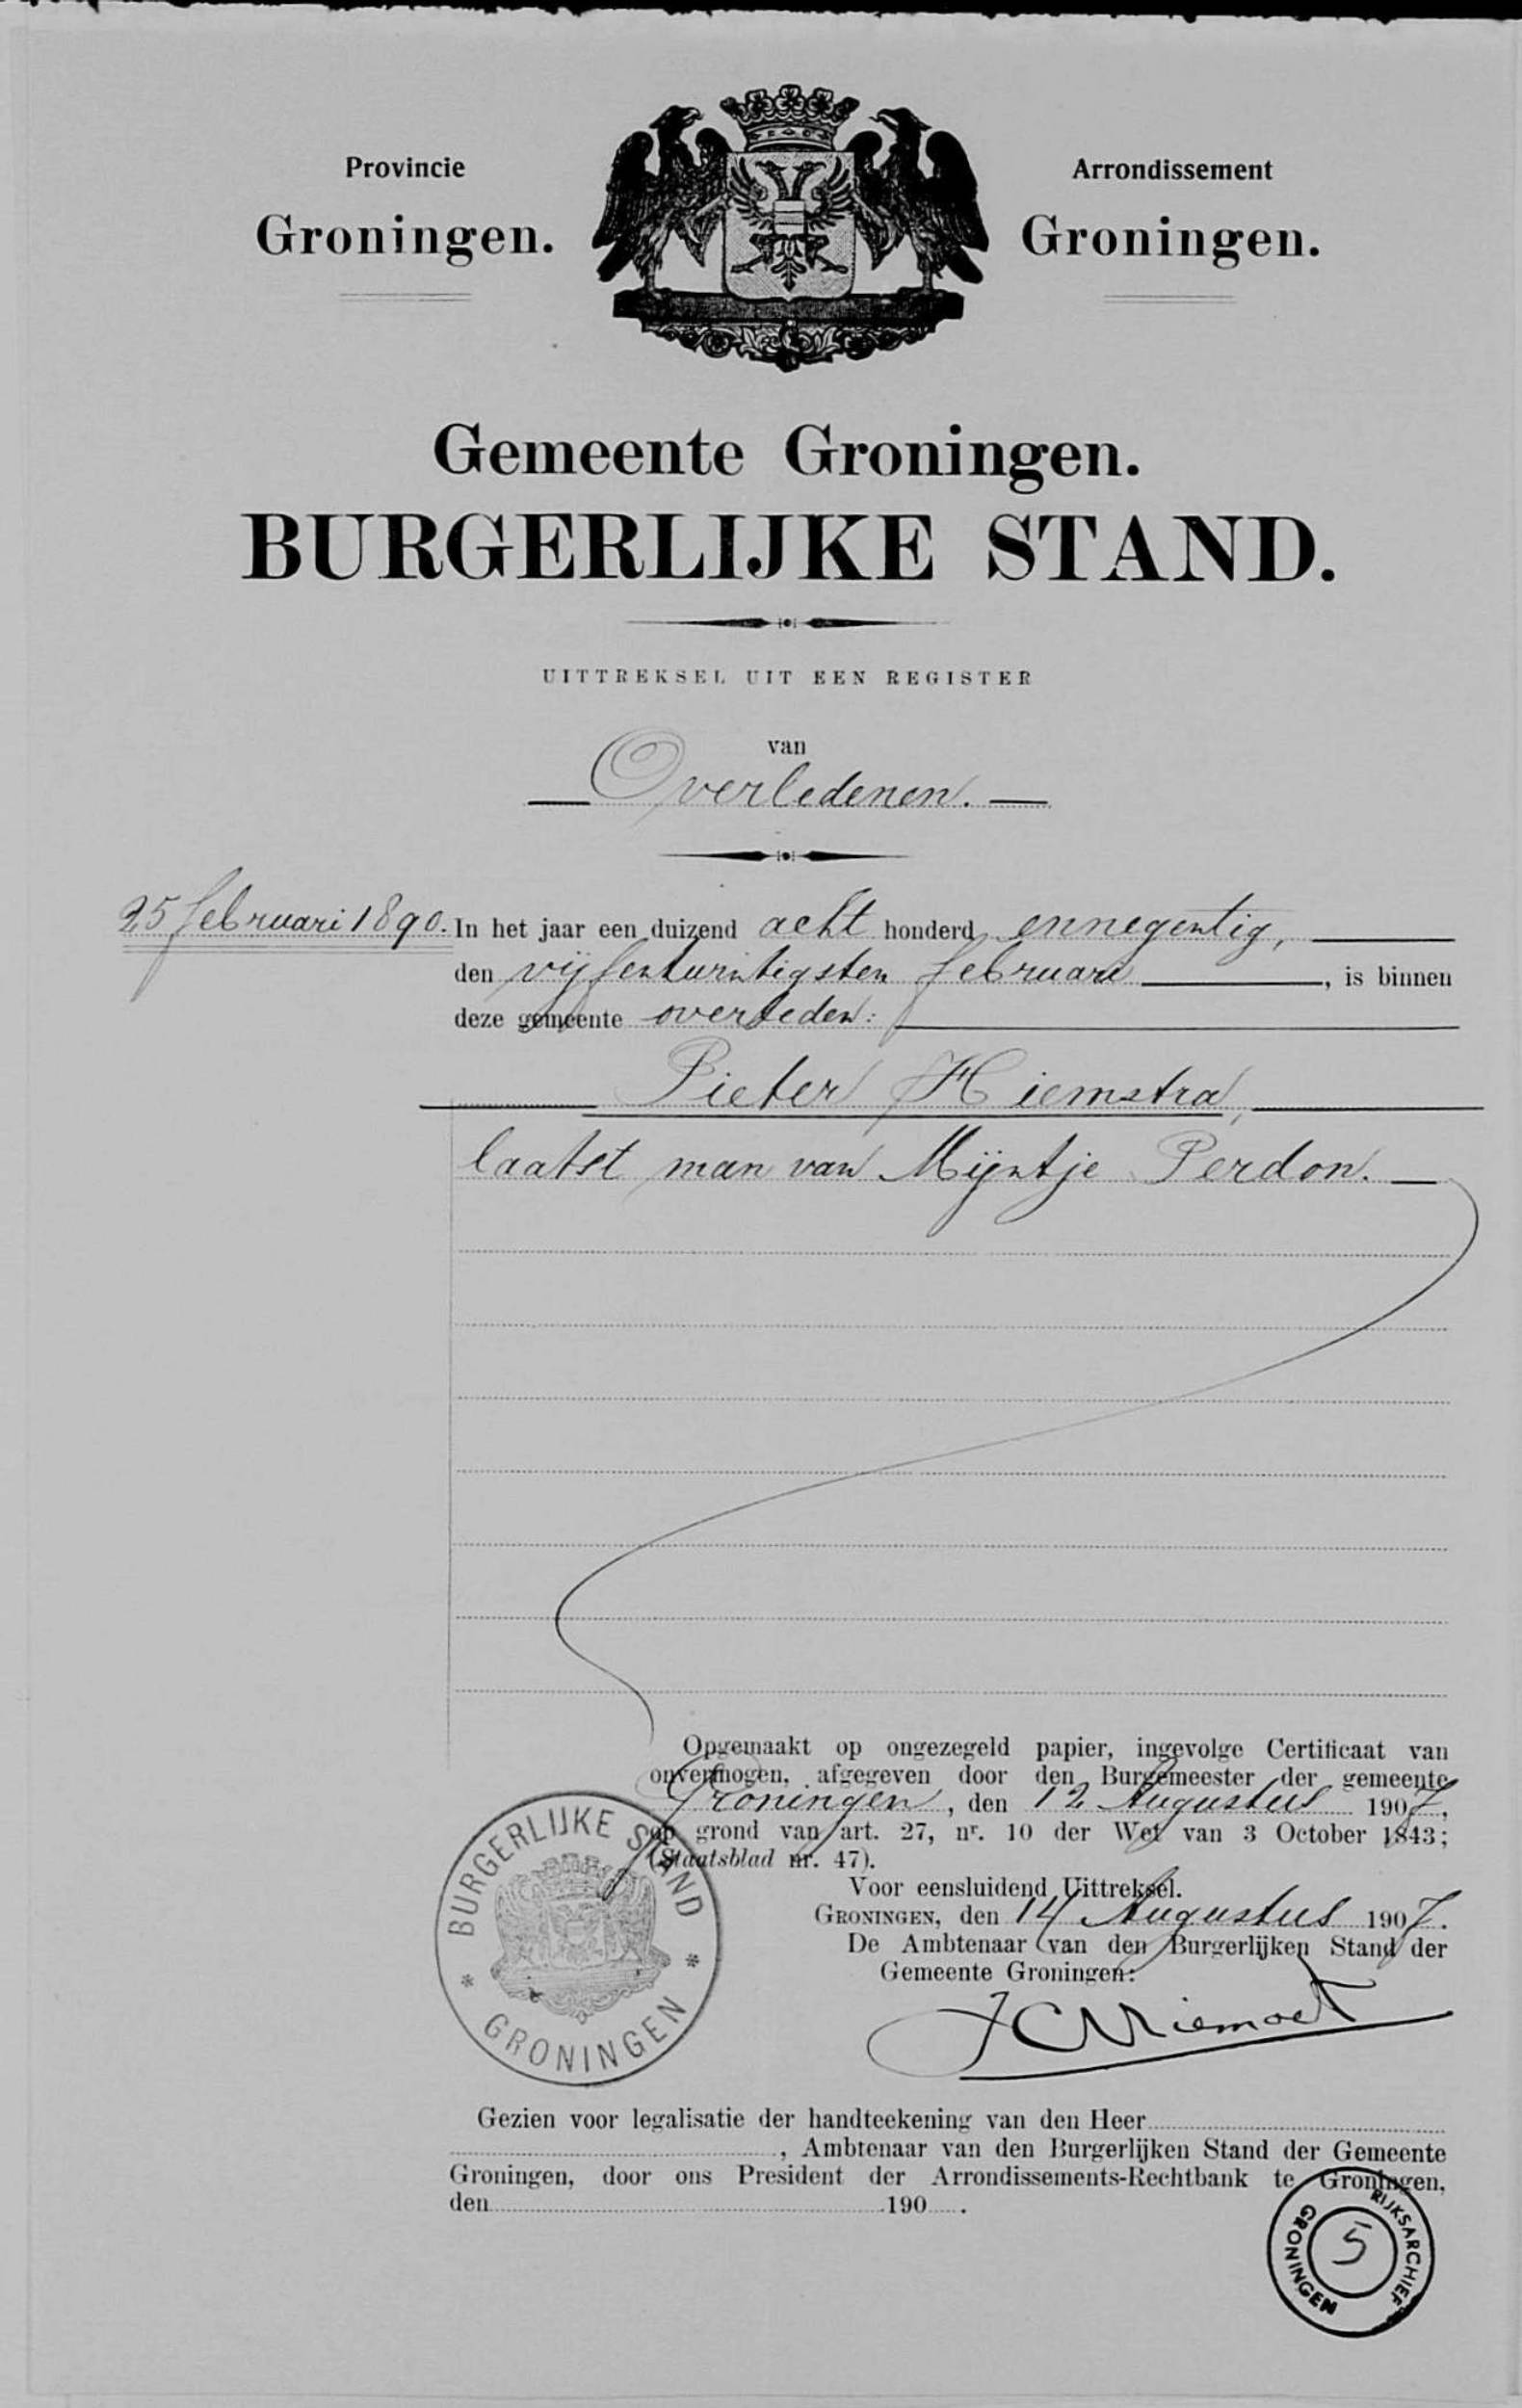 Provincie
Groningen.
Arrondissement
Groningen.
Gemeente Groningen.
BURGERLIJKE STAND.
UITTREKSEL UIT EEN REGISTER
van
Overledenen.
25 februari 1890.
In het jaar een duizend acht honderd en negentig,
den vijfentwintigsten februari, is binnen
deze gemeente overleden:
Pieter Hiemstra,
laatst man van Mijntje Perdon.
Opgemaakt op ongezegeld papier, ingevolge Certificaat van
onvermogen, afgegeven door den Burgemeester der gemeente
Groningen, den 12 Augustus 1907,
op grond van art. 27, nr. 10 der Wet van 3 October 1843;
(Staatsblad nr. 47).
Voor eensluidend Uittreksel.
GRONINGEN, den 14 Augustus 1907.
De Ambtenaar van den Burgerlijken Stand der
Gemeente Groningen:
BURGERLIJKE STAND
* GRONINGEN *
Gezien voor legalisatie der handteekening van den Heer
, Ambtenaar van den Burgerlijken Stand der Gemeente
Groningen, door ons President der Arrondissements-Rechtbank te Groningen,
den 190 .
RIJKSARCHIEF
GRONINGEN
5